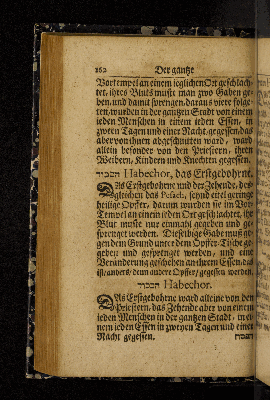 162 Der gantze
Vortempel an einem jeglichen Ort geschlach-
tet, ihres Bluts muste man zwo Gaben ge-
ben, und damit sprengen, daraus viere folge-
ten, wurden in der gantzen Stadt von einem
jeden Menschen in einem jeden Essen, in
zween Tagen und einer Nacht, gegessen, das
aber von ihnen abgeschnitten ward, ward
allein besonder von den Priestern, ihren
Weibern, Kindern und Knechten gegessen.
הבכור Habechor, das Erstgebohrne.
Das Erstgebohrne und der Zehende, des-
gleichen das Pesach, seynd eitel geringe
heilige Opffer, darum wurden sie im Vor-
Tempel an einem jeden Ort geschlachtet, ihr
Blut muste nur einmahl gegeben und ge-
sprenget werden. Dieselbige Gabe muß ge-
gen dem Grunde unter dem Opffer-Tische ge-
geben und gesprenget werden, und eine
Veränderung geschehen an ihrem Essen, das
ist, anders, denn andere Opffer, gegessen werden.
הבכור Habechor.
Das Erstgebohrne ward alleine von den
Priestern, das Zehende aber von einem
jeden Menschen in der gantzen Stadt, in ei-
nem jeden Essen in zweyen Tagen und einer
Nacht gegessen.